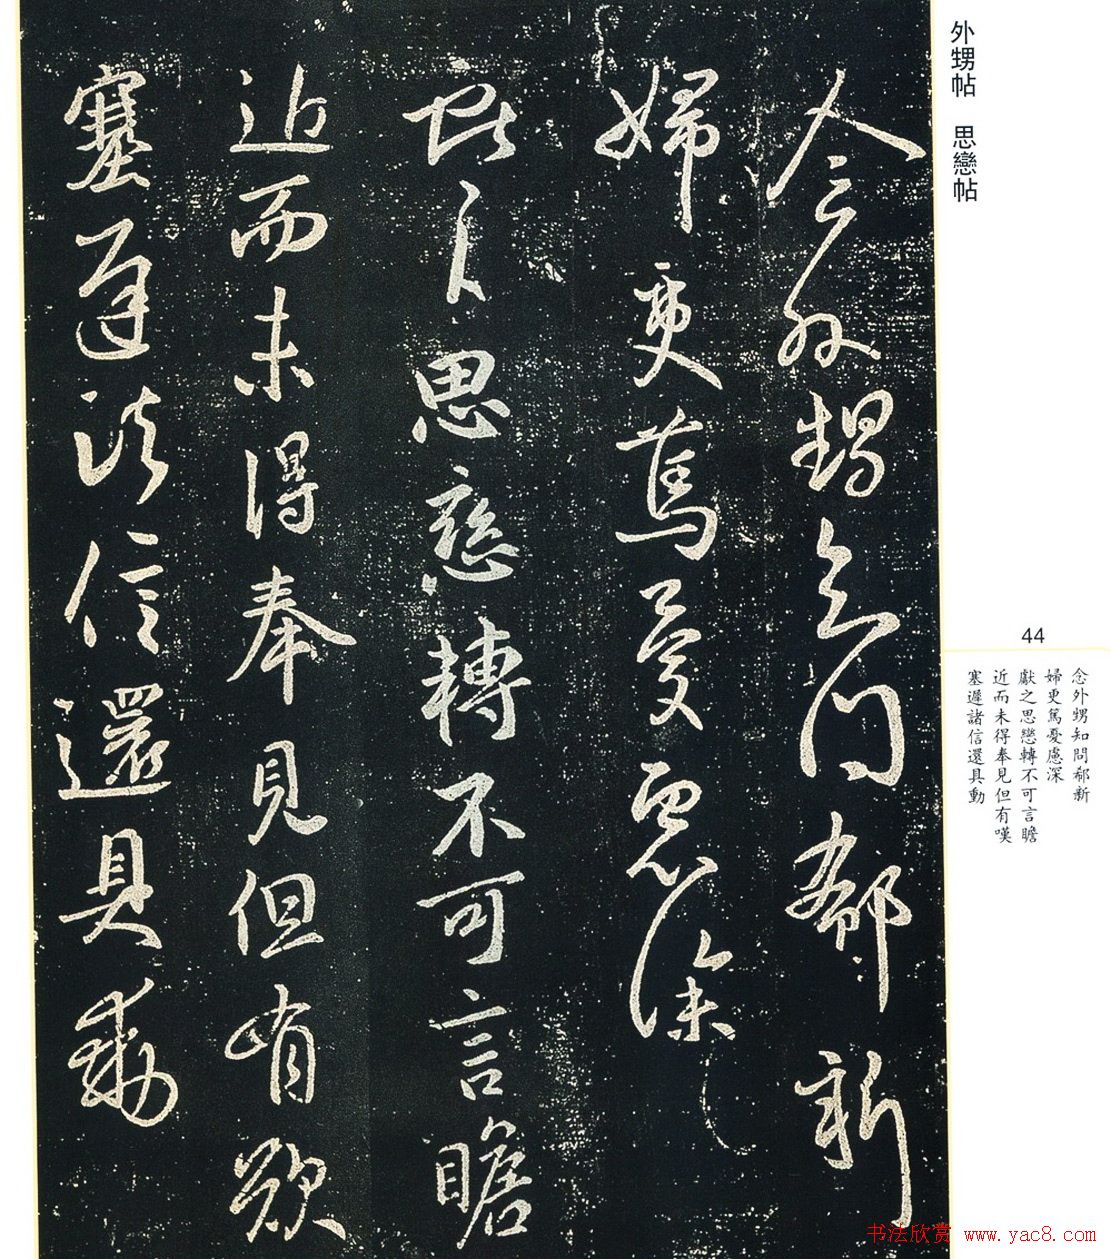 外甥帖　思戀帖
念外甥知問郗新
婦更篤憂慮深
獻之思戀轉不可言瞻
近而未得奉見但有歎
塞遲諸信還具動
44
念外甥知問郗新
婦更篤憂慮深
獻之思戀轉不可言瞻
近而未得奉見但有嘆
塞遲諸信還具動
书法欣赏 www.yac8.com